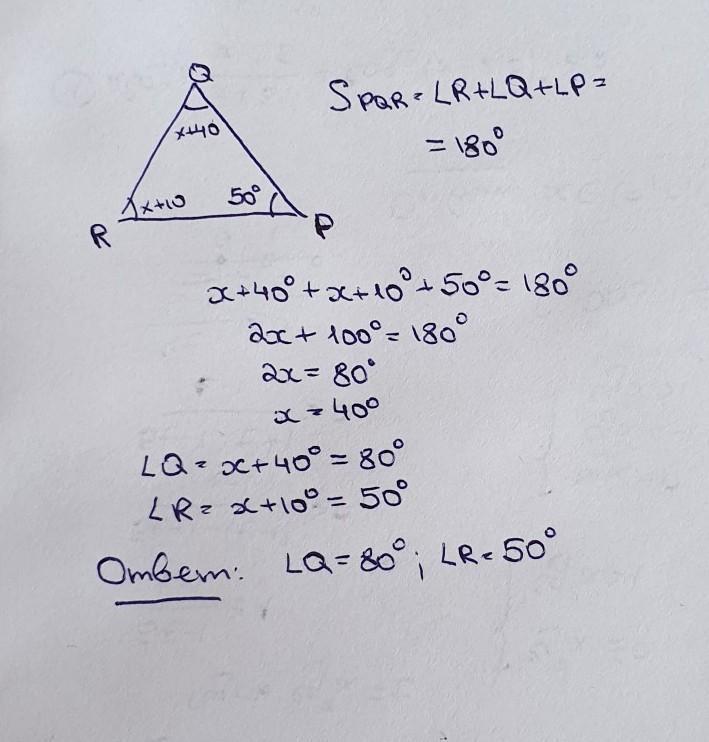 Q
x+40
x+10
50°
R
P
S PQR = ∠R+∠Q+∠P =
= 180°
x+40°+x+10°+50°=180°
2x+100°=180°
2x=80°
x=40°
∠Q=x+40°=80°
∠R=x+10°=50°
Ответ: ∠Q=80°; ∠R=50°